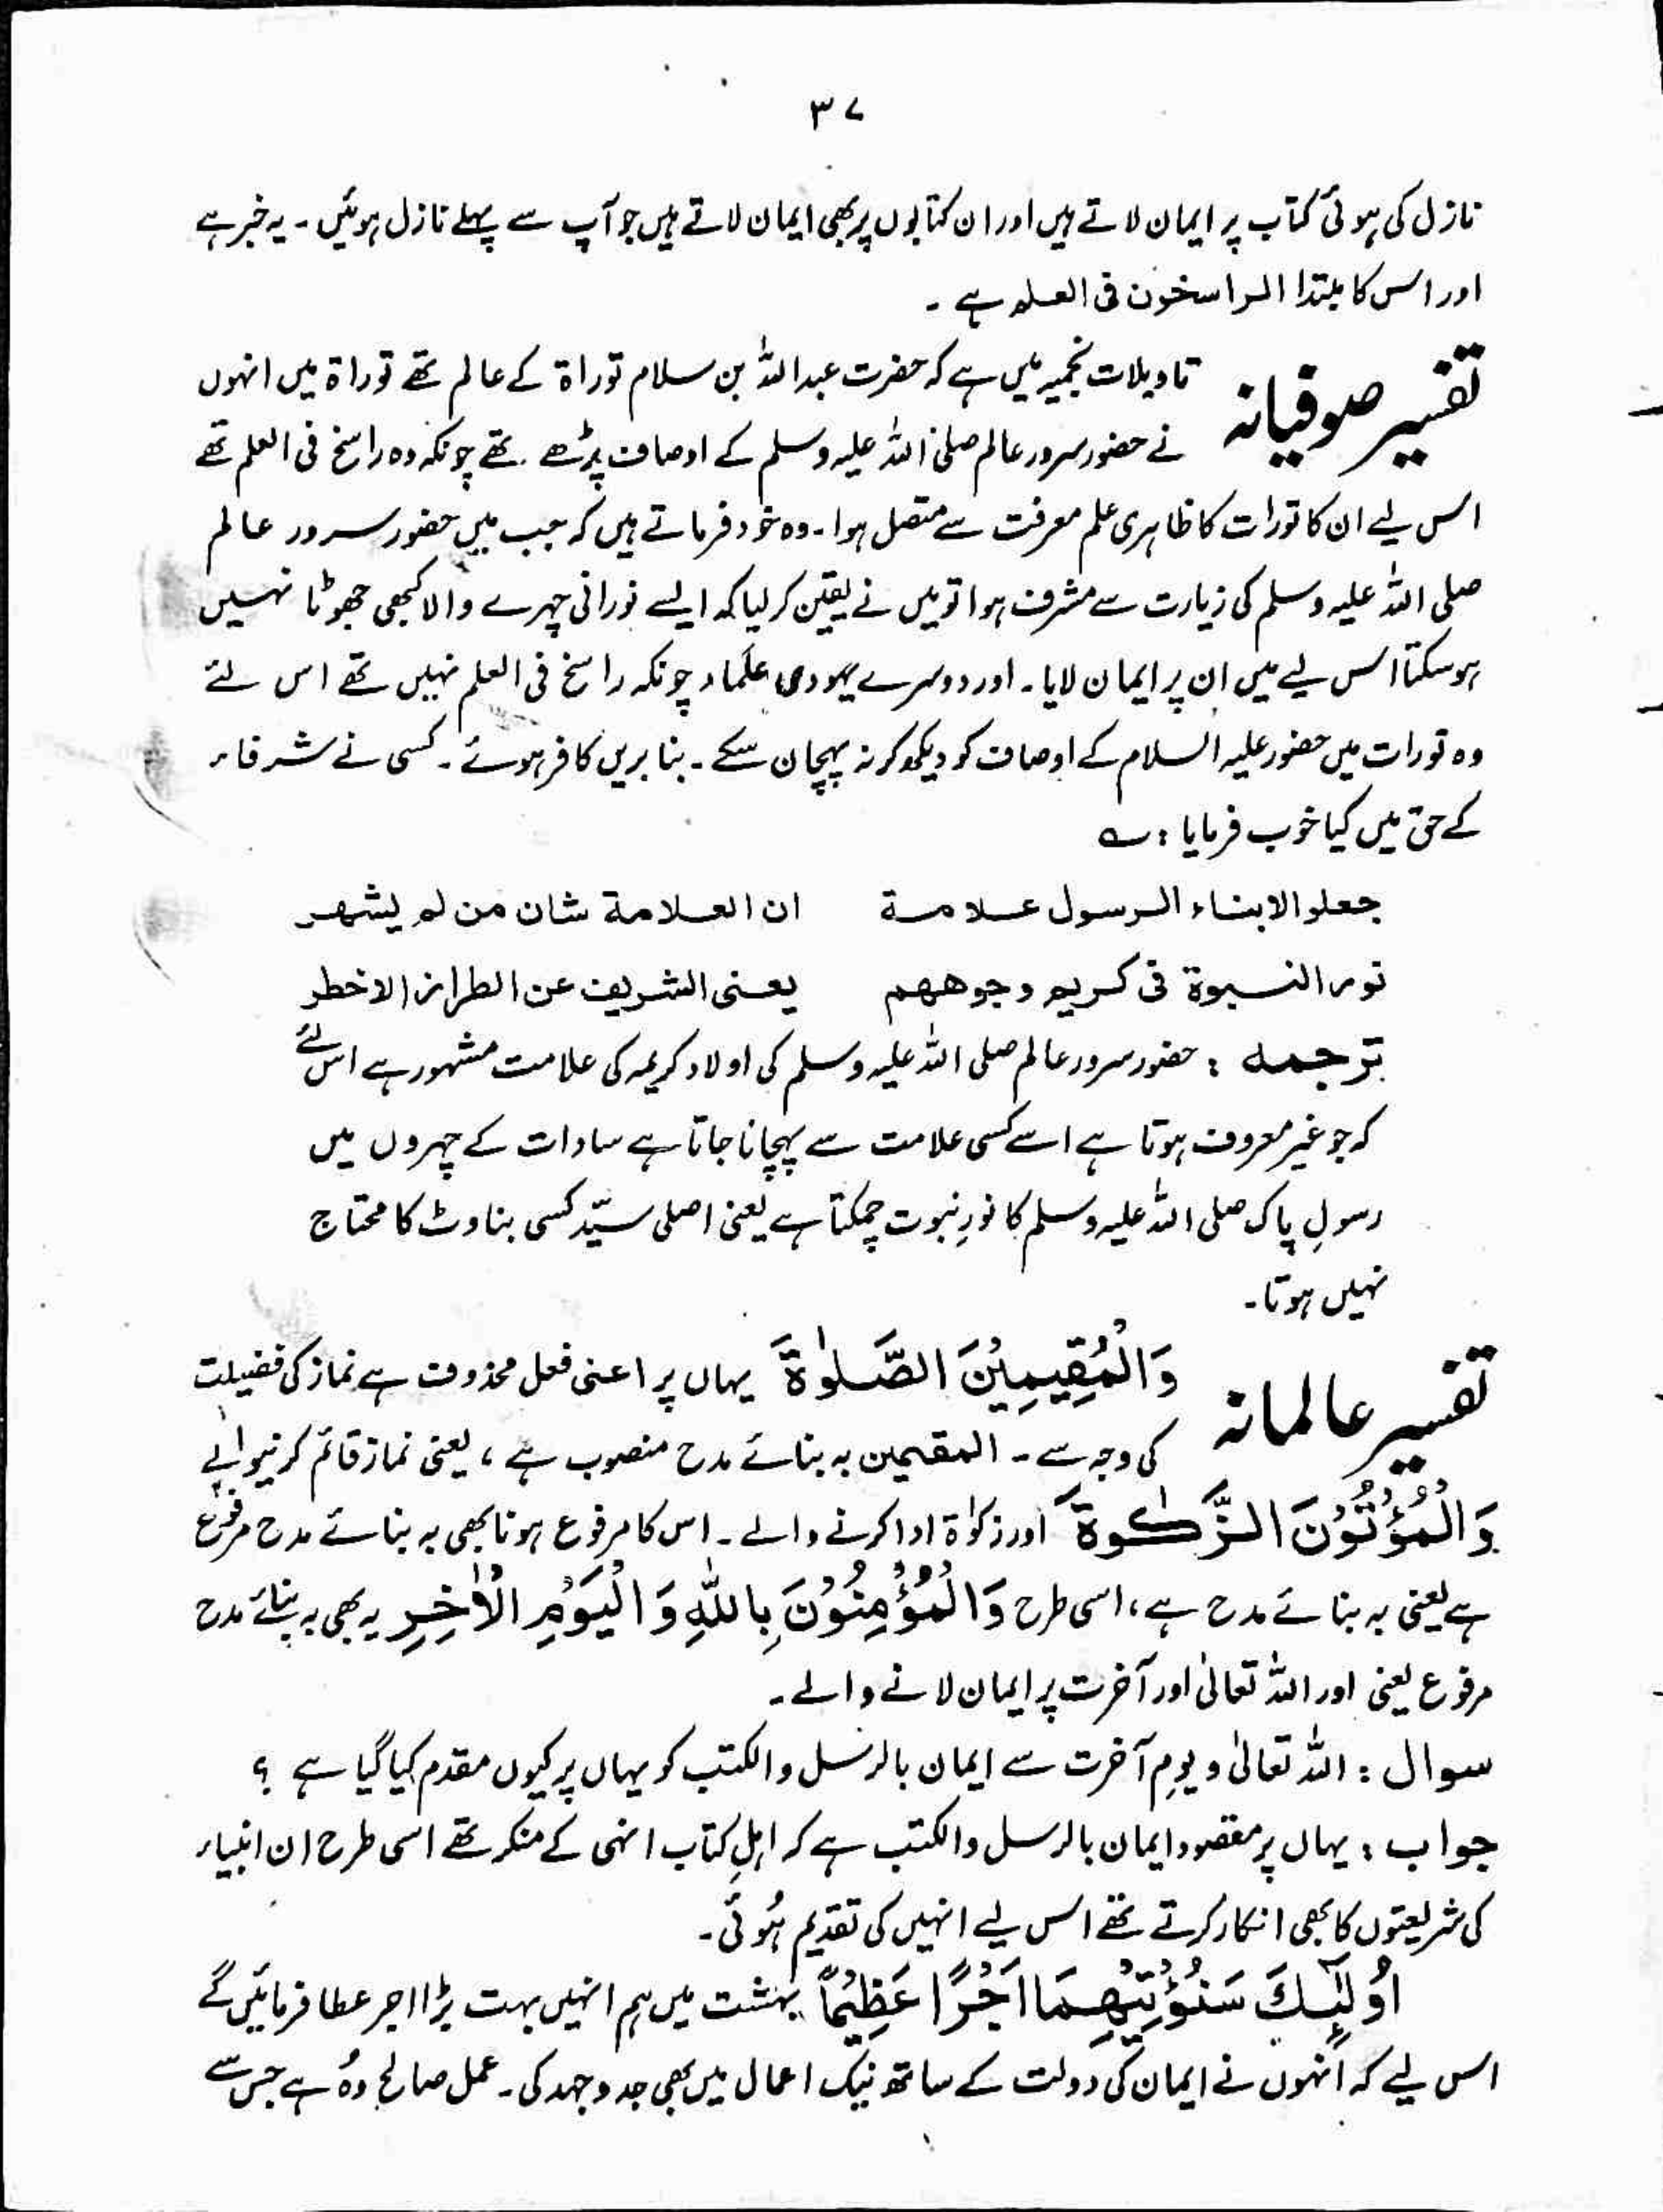 ۳۷
نازل کی ہوئی کتاب پر ایمان لاتے ہیں اور ان کتابوں پر بھی ایمان لاتے ہیں جو آپ سے پہلے نازل ہوئیں ۔ یہ خبر ہے
اور اس کا مبتدا الراسخون فی العلم ہے ۔
تفسیر صوفیانہ تاویلات نجمیہ میں ہے کہ حضرت عبداللہ بن سلام توراۃ کے عالم تھے توراۃ میں انہوں
نے حضور سرور عالم صلی اللہ علیہ وسلم کے اوصاف پڑھے تھے چونکہ وہ راسخ فی العلم تھے
اس لیے ان کا تورات کا ظاہری علم معرفت سے متصل ہوا ۔ وہ خود فرماتے ہیں کہ جب میں حضور سرور عالم
صلی اللہ علیہ وسلم کی زیارت سے مشرف ہوا تو میں نے یقین کر لیا کہ ایسے نورانی چہرے والا کبھی جھوٹا نہیں
ہوسکتا اس لیے میں ان پر ایمان لایا ۔ اور دوسرے یہودی علماء چونکہ راسخ فی العلم نہیں تھے اس لئے
وہ تورات میں حضور علیہ السلام کے اوصاف کو دیکھ کر نہ پہچان سکے ۔ بنا بریں کافر ہوئے ۔ کسی نے شرفاء
کے حق میں کیا خوب فرمایا : ؎
جعلوا الابناء الرسول علامة ان العلامة شان من لم یشهر
نور النبوة فی کریم وجوههم یعنی الشریف عن الطراز الاخطر
ترجمہ : حضور سرور عالم صلی اللہ علیہ وسلم کی اولاد کریمہ کی علامت مشہور ہے اس لئے
کہ جو غیر معروف ہوتا ہے اسے کسی علامت سے پہچانا جاتا ہے سادات کے چہروں میں
رسولِ پاک صلی اللہ علیہ وسلم کا نورِ نبوت چمکتا ہے یعنی اصلی سیّد کسی بناوٹ کا محتاج
نہیں ہوتا ۔
تفسیر عالمانہ وَالْمُقِیْمِیْنَ الصَّلٰوةَ یہاں پر اعنی فعل محذوف ہے نماز کی فضیلت
کی وجہ سے ۔ المقیمین بہ بنائے مدح منصوب ہے ، یعنی نماز قائم کرنیوالے
وَالْمُؤْتُوْنَ الزَّکٰوةَ اور زکوٰۃ ادا کرنے والے ۔ اس کا مرفوع ہونا بھی بہ بنائے مدح مرفوع
ہے یعنی بہ بنائے مدح ہے ، اسی طرح وَالْمُؤْمِنُوْنَ بِاللّٰهِ وَالْیَوْمِ الْاٰخِرِ یہ بھی بہ بنائے مدح
مرفوع یعنی اور اللہ تعالیٰ اور آخرت پر ایمان لانے والے ۔
سوال : اللہ تعالیٰ و یومِ آخرت سے ایمان بالرسل والکتب کو یہاں پر کیوں مقدم کیا گیا ہے ؟
جواب : یہاں پر مقصود ایمان بالرسل والکتب ہے کہ اہلِ کتاب انہی کے منکر تھے اسی طرح ان انبیاء
کی شریعتوں کا بھی انکار کرتے تھے اس لیے انہیں کی تقدیم ہُوئی ۔
اُولٰٓئِکَ سَنُؤْتِیْهِمْ اَجْرًا عَظِیْمًا بہشت میں ہم انہیں بہت بڑا اجر عطا فرمائیں گے
اس لیے کہ انہوں نے ایمان کی دولت کے ساتھ نیک اعمال میں بھی جد و جہد کی ۔ عمل صالح وہُ ہے جس سے